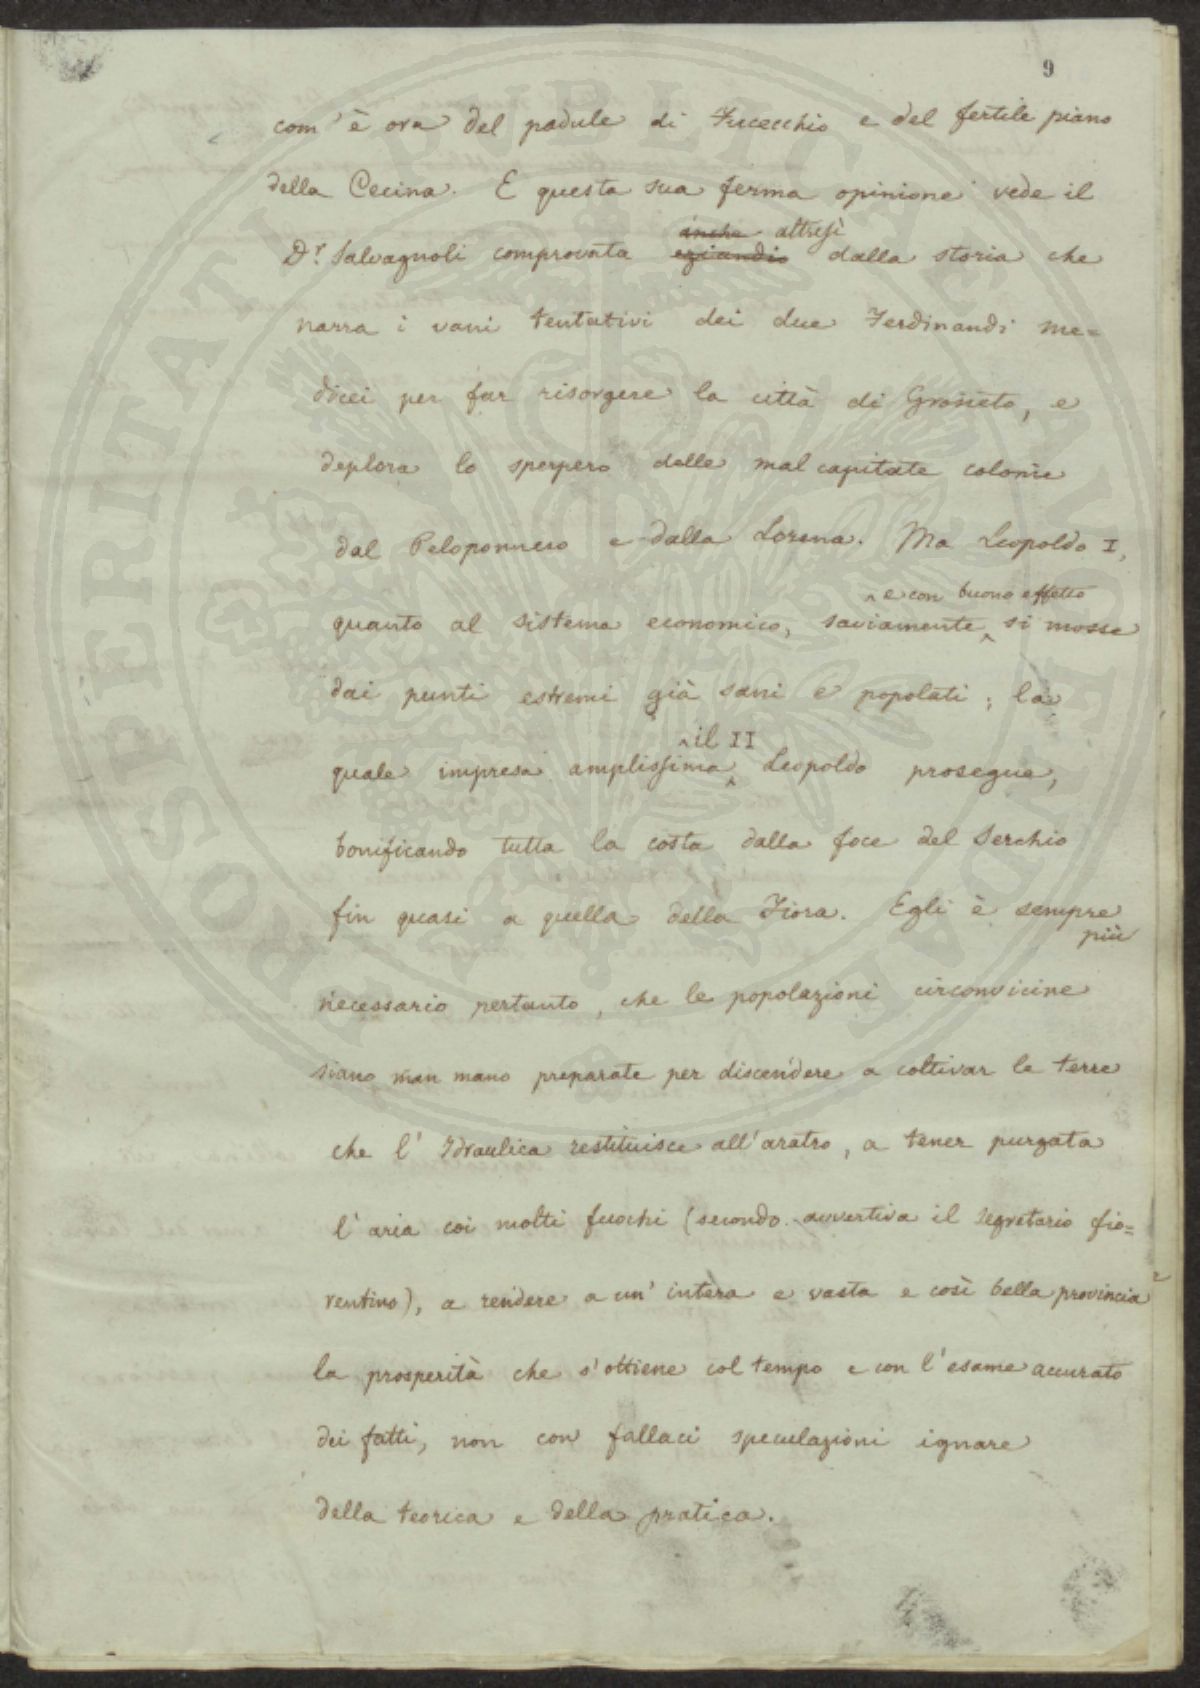 9
com' è ora del padule di Fucecchio e del fertile piano
della Cecina. E questa sua ferma opinione vede il
anche altresì
Dr. Salvagnoli comprovata eziandio dalla storia che
narra i vani tentativi dei due Ferdinandi me=
dicei per far risorgere la città di Grosseto, e
deplora lo sperpero delle mal capitate colonie
dal Peloponneso e dalla Lorena. Ma Leopoldo I,
e con buono effetto
quanto al sistema economico, saviamente si mosse
dai punti estremi già sani e popolati; la
il II
quale impresa amplissima Leopoldo prosegue,
bonificando tutta la costa dalla foce del Serchio
fin quasi a quella della Fiora. Egli è sempre
più
necessario pertanto, che le popolazioni circonvicine
siano man mano preparate per discendere a coltivar le terre
che l' Idraulica restituisce all'aratro, a tener purgata
l' aria coi molti fuochi (secondo avvertiva il Segretario fio=
rentino), a rendere a un' intera e vasta e così bella provincia
la prosperità che s'ottiene col tempo e con l'esame accurato
dei fatti, non con fallaci speculazioni ignare
della teorica e della pratica.
PROSPERITATI PUBLICAE AUGENDAE